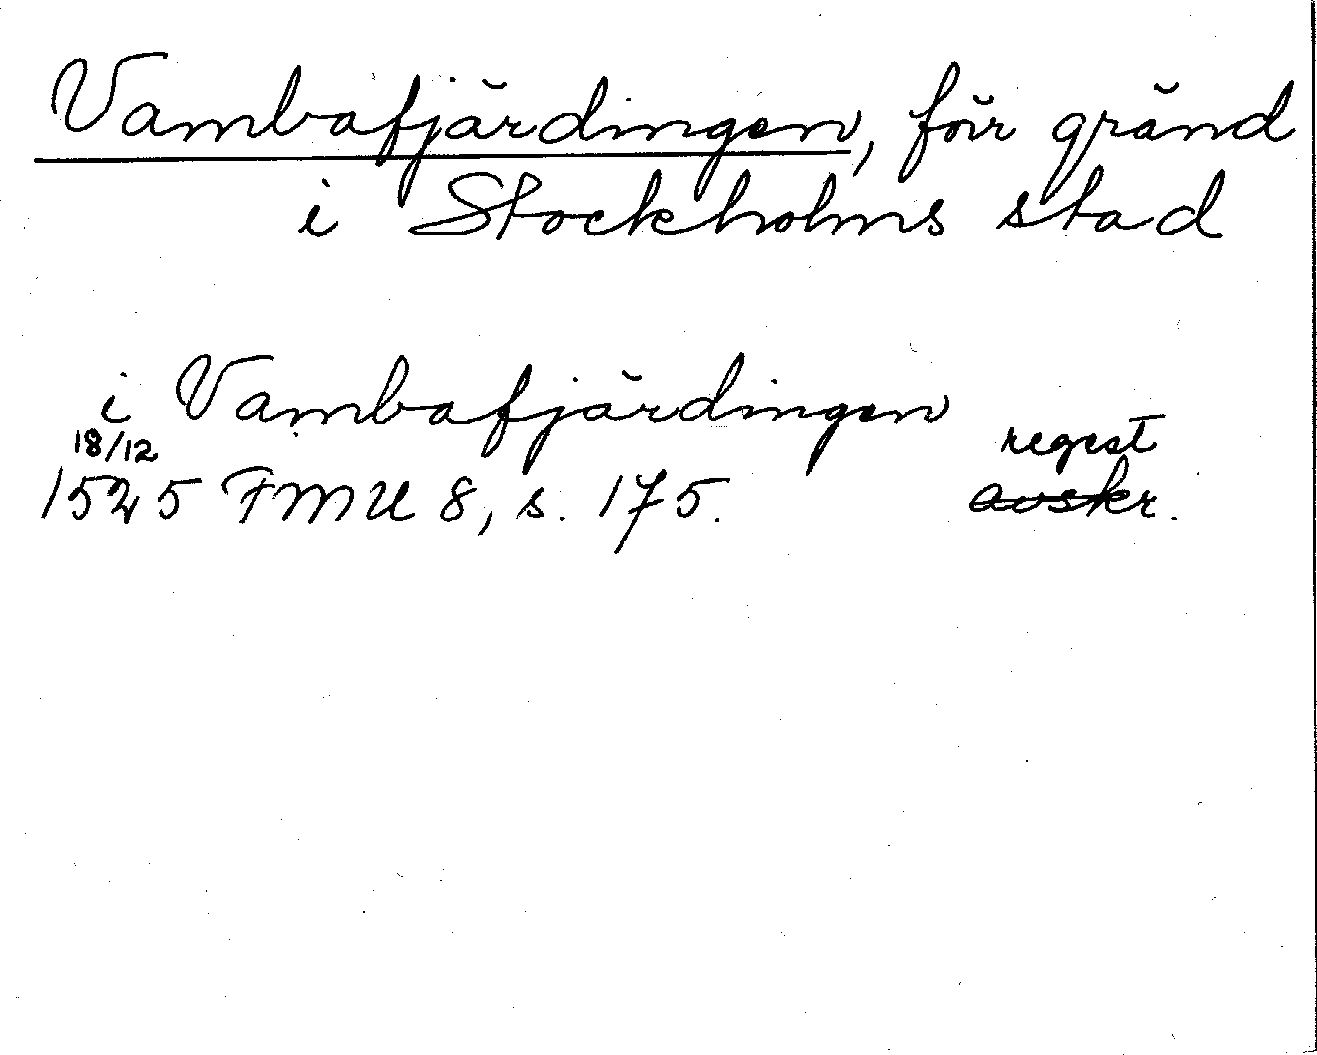 Vambafjärdingen, förr gränd
i Stockholms stad
i Vambafjärdingen
18/12 regest
1525 FMU 8, s. 175. avskr.